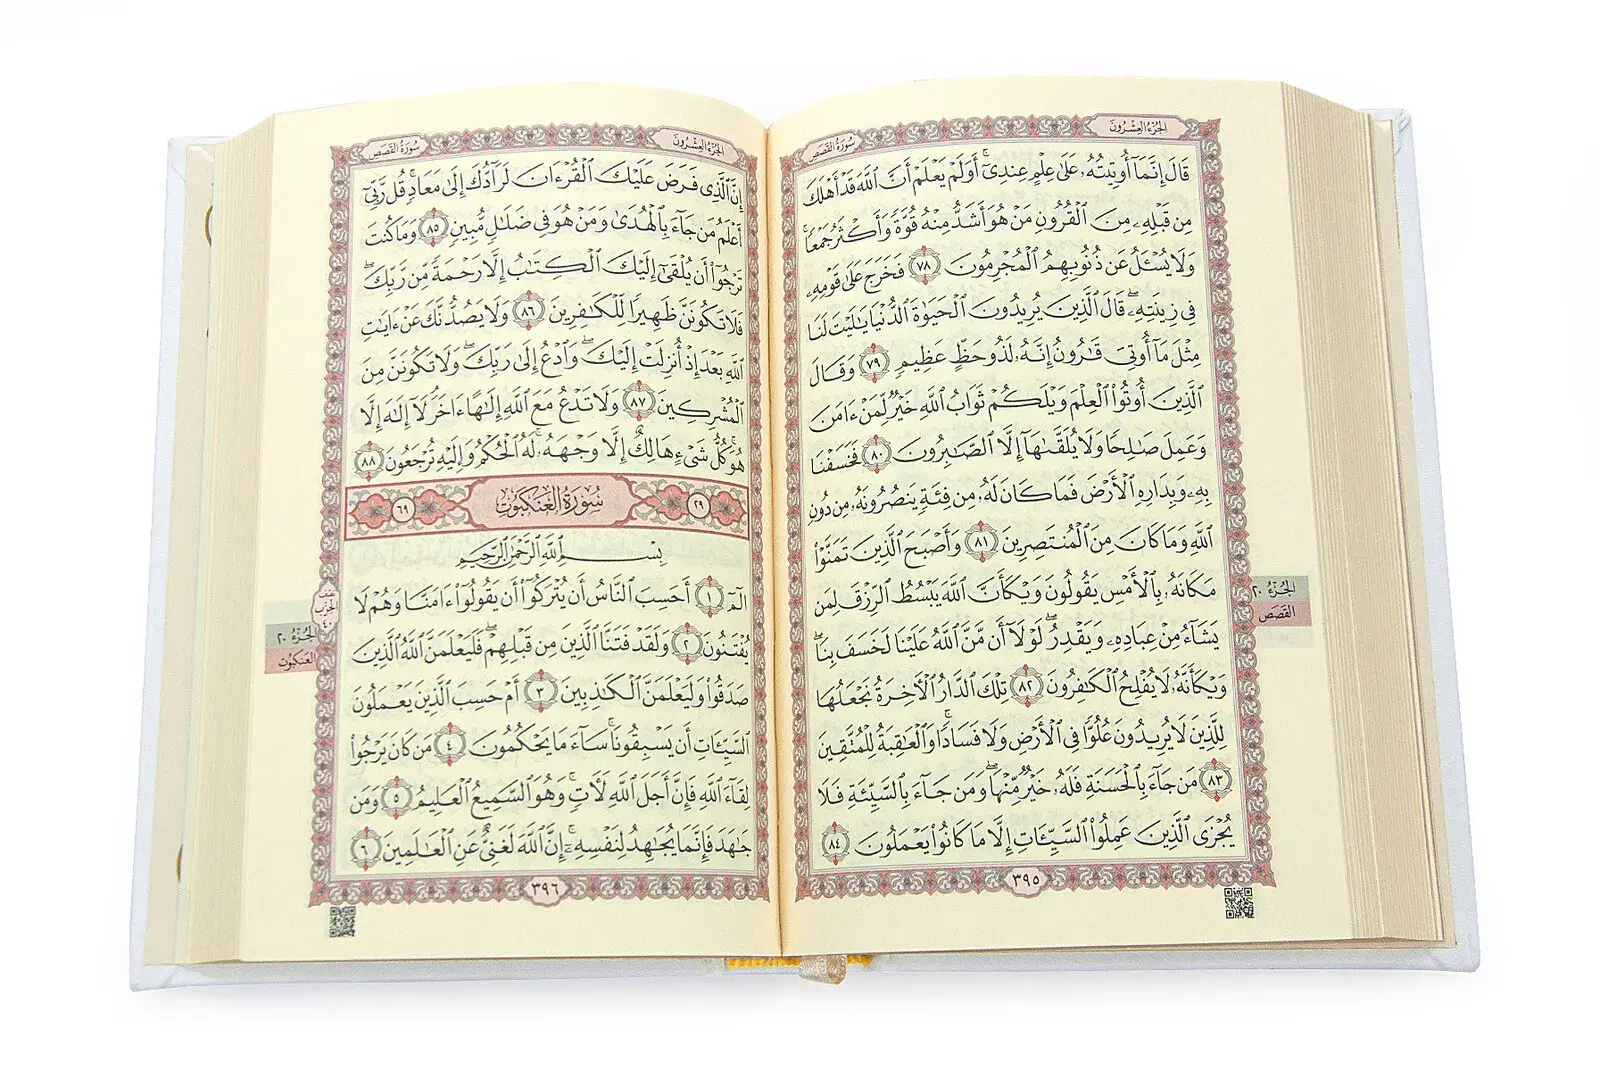 الجزء العشرون
سورة القصص
قَالَ إِنَّمَآ أُوتِيتُهُۥ عَلَىٰ عِلْمٍ عِندِىٓ ۚ أَوَلَمْ يَعْلَمْ أَنَّ ٱللَّهَ قَدْ أَهْلَكَ
مِن قَبْلِهِۦ مِنَ ٱلْقُرُونِ مَنْ هُوَ أَشَدُّ مِنْهُ قُوَّةً وَأَكْثَرُ جَمْعًا ۚ
وَلَا يُسْـَٔلُ عَن ذُنُوبِهِمُ ٱلْمُجْرِمُونَ ٧٨ فَخَرَجَ عَلَىٰ قَوْمِهِۦ
فِى زِينَتِهِۦ ۖ قَالَ ٱلَّذِينَ يُرِيدُونَ ٱلْحَيَوٰةَ ٱلدُّنْيَا يَٰلَيْتَ لَنَا
مِثْلَ مَآ أُوتِىَ قَٰرُونُ إِنَّهُۥ لَذُو حَظٍّ عَظِيمٍ ٧٩ وَقَالَ
ٱلَّذِينَ أُوتُوا۟ ٱلْعِلْمَ وَيْلَكُمْ ثَوَابُ ٱللَّهِ خَيْرٌ لِّمَنْ ءَامَنَ
وَعَمِلَ صَٰلِحًا وَلَا يُلَقَّىٰهَآ إِلَّا ٱلصَّٰبِرُونَ ٨٠ فَخَسَفْنَا
بِهِۦ وَبِدَارِهِ ٱلْأَرْضَ فَمَا كَانَ لَهُۥ مِن فِئَةٍ يَنصُرُونَهُۥ مِن دُونِ
ٱللَّهِ وَمَا كَانَ مِنَ ٱلْمُنتَصِرِينَ ٨١ وَأَصْبَحَ ٱلَّذِينَ تَمَنَّوْا۟
مَكَانَهُۥ بِٱلْأَمْسِ يَقُولُونَ وَيْكَأَنَّ ٱللَّهَ يَبْسُطُ ٱلرِّزْقَ لِمَن
يَشَآءُ مِنْ عِبَادِهِۦ وَيَقْدِرُ ۖ لَوْلَآ أَن مَّنَّ ٱللَّهُ عَلَيْنَا لَخَسَفَ بِنَا ۖ
وَيْكَأَنَّهُۥ لَا يُفْلِحُ ٱلْكَٰفِرُونَ ٨٢ تِلْكَ ٱلدَّارُ ٱلْءَاخِرَةُ نَجْعَلُهَا
لِلَّذِينَ لَا يُرِيدُونَ عُلُوًّا فِى ٱلْأَرْضِ وَلَا فَسَادًا ۚ وَٱلْعَٰقِبَةُ لِلْمُتَّقِينَ
٨٣ مَن جَآءَ بِٱلْحَسَنَةِ فَلَهُۥ خَيْرٌ مِّنْهَا ۖ وَمَن جَآءَ بِٱلسَّيِّئَةِ فَلَا
يُجْزَى ٱلَّذِينَ عَمِلُوا۟ ٱلسَّيِّـَٔاتِ إِلَّا مَا كَانُوا۟ يَعْمَلُونَ ٨٤
٣٩٥
الجزء ٢٠
القصص
الجزء العشرون
سورة القصص
إِنَّ ٱلَّذِى فَرَضَ عَلَيْكَ ٱلْقُرْءَانَ لَرَآدُّكَ إِلَىٰ مَعَادٍ ۚ قُل رَّبِّىٓ
أَعْلَمُ مَن جَآءَ بِٱلْهُدَىٰ وَمَنْ هُوَ فِى ضَلَٰلٍ مُّبِينٍ ٨٥ وَمَا كُنتَ
تَرْجُوٓا۟ أَن يُلْقَىٰٓ إِلَيْكَ ٱلْكِتَٰبُ إِلَّا رَحْمَةً مِّن رَّبِّكَ ۖ
فَلَا تَكُونَنَّ ظَهِيرًا لِّلْكَٰفِرِينَ ٨٦ وَلَا يَصُدُّنَّكَ عَنْ ءَايَٰتِ
ٱللَّهِ بَعْدَ إِذْ أُنزِلَتْ إِلَيْكَ ۖ وَٱدْعُ إِلَىٰ رَبِّكَ ۖ وَلَا تَكُونَنَّ مِنَ
ٱلْمُشْرِكِينَ ٨٧ وَلَا تَدْعُ مَعَ ٱللَّهِ إِلَٰهًا ءَاخَرَ ۘ لَآ إِلَٰهَ إِلَّا
هُوَ ۚ كُلُّ شَىْءٍ هَالِكٌ إِلَّا وَجْهَهُۥ ۚ لَهُ ٱلْحُكْمُ وَإِلَيْهِ تُرْجَعُونَ ٨٨
٢٩ سُورَةُ العَنكَبُوتِ ٦٩
بِسْمِ ٱللَّهِ ٱلرَّحْمَٰنِ ٱلرَّحِيمِ
الٓمٓ ١ أَحَسِبَ ٱلنَّاسُ أَن يُتْرَكُوٓا۟ أَن يَقُولُوٓا۟ ءَامَنَّا وَهُمْ لَا
يُفْتَنُونَ ٢ وَلَقَدْ فَتَنَّا ٱلَّذِينَ مِن قَبْلِهِمْ ۖ فَلَيَعْلَمَنَّ ٱللَّهُ ٱلَّذِينَ
صَدَقُوا۟ وَلَيَعْلَمَنَّ ٱلْكَٰذِبِينَ ٣ أَمْ حَسِبَ ٱلَّذِينَ يَعْمَلُونَ
ٱلسَّيِّـَٔاتِ أَن يَسْبِقُونَا ۚ سَآءَ مَا يَحْكُمُونَ ٤ مَن كَانَ يَرْجُوا۟
لِقَآءَ ٱللَّهِ فَإِنَّ أَجَلَ ٱللَّهِ لَءَاتٍ ۚ وَهُوَ ٱلسَّمِيعُ ٱلْعَلِيمُ ٥ وَمَن
جَٰهَدَ فَإِنَّمَا يُجَٰهِدُ لِنَفْسِهِۦٓ ۚ إِنَّ ٱللَّهَ لَغَنِىٌّ عَنِ ٱلْعَٰلَمِينَ ٦
٣٩٦
نصف
الحزب
٤٠
الجزء ٢٠
العنكبوت